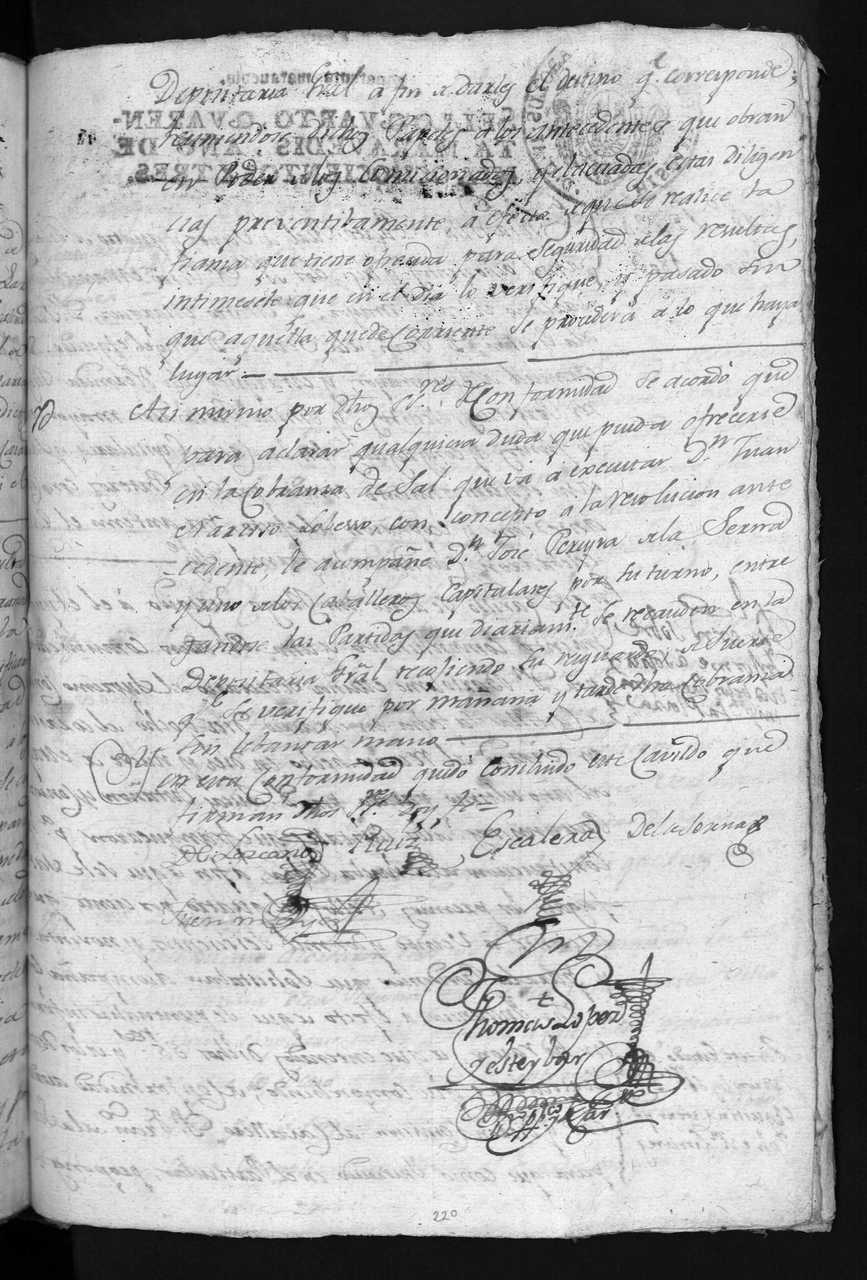 Depositaria Gral a fin de darles el destino qe corresponde;
reuniendose dichos Papeles a los antecedentes que obran
en Poder de los Comisionados, y evacuadas estas diligen
cias preventivamente, a efecto de que se realice la
fianza que tiene ofrecida para seguridad de las resultas,
intimesele que en el dia lo verifique, y pasado sin
que aquella quede Corriente se procederá a lo que haya
lugar.
Asi mismo por dhos Sres de Conformidad se acordó que
para aclarar qualquiera duda que pueda ofrecerse
en la Cobranza de Sal que va á executar Dn Juan
Narciso con concepto a la resolucion ante
cedente, le acompañe Dn José Pereyra de la Serna
y uno de los Cavalleros Capitulares por su turno, entre
gandose las Partidas que diariamte se recauden en la
Depositaria Gral recojiendo su resguardo de suerte
qe se verifique por mañana y tarde dha Cobranza
sin lebantar mano
Y en esta Conformidad quedó Concluido este Cavildo que
firman dhos Sres doy fee
Ruiz Escalera De la Serna
Thomas Lopez
y Esteybar